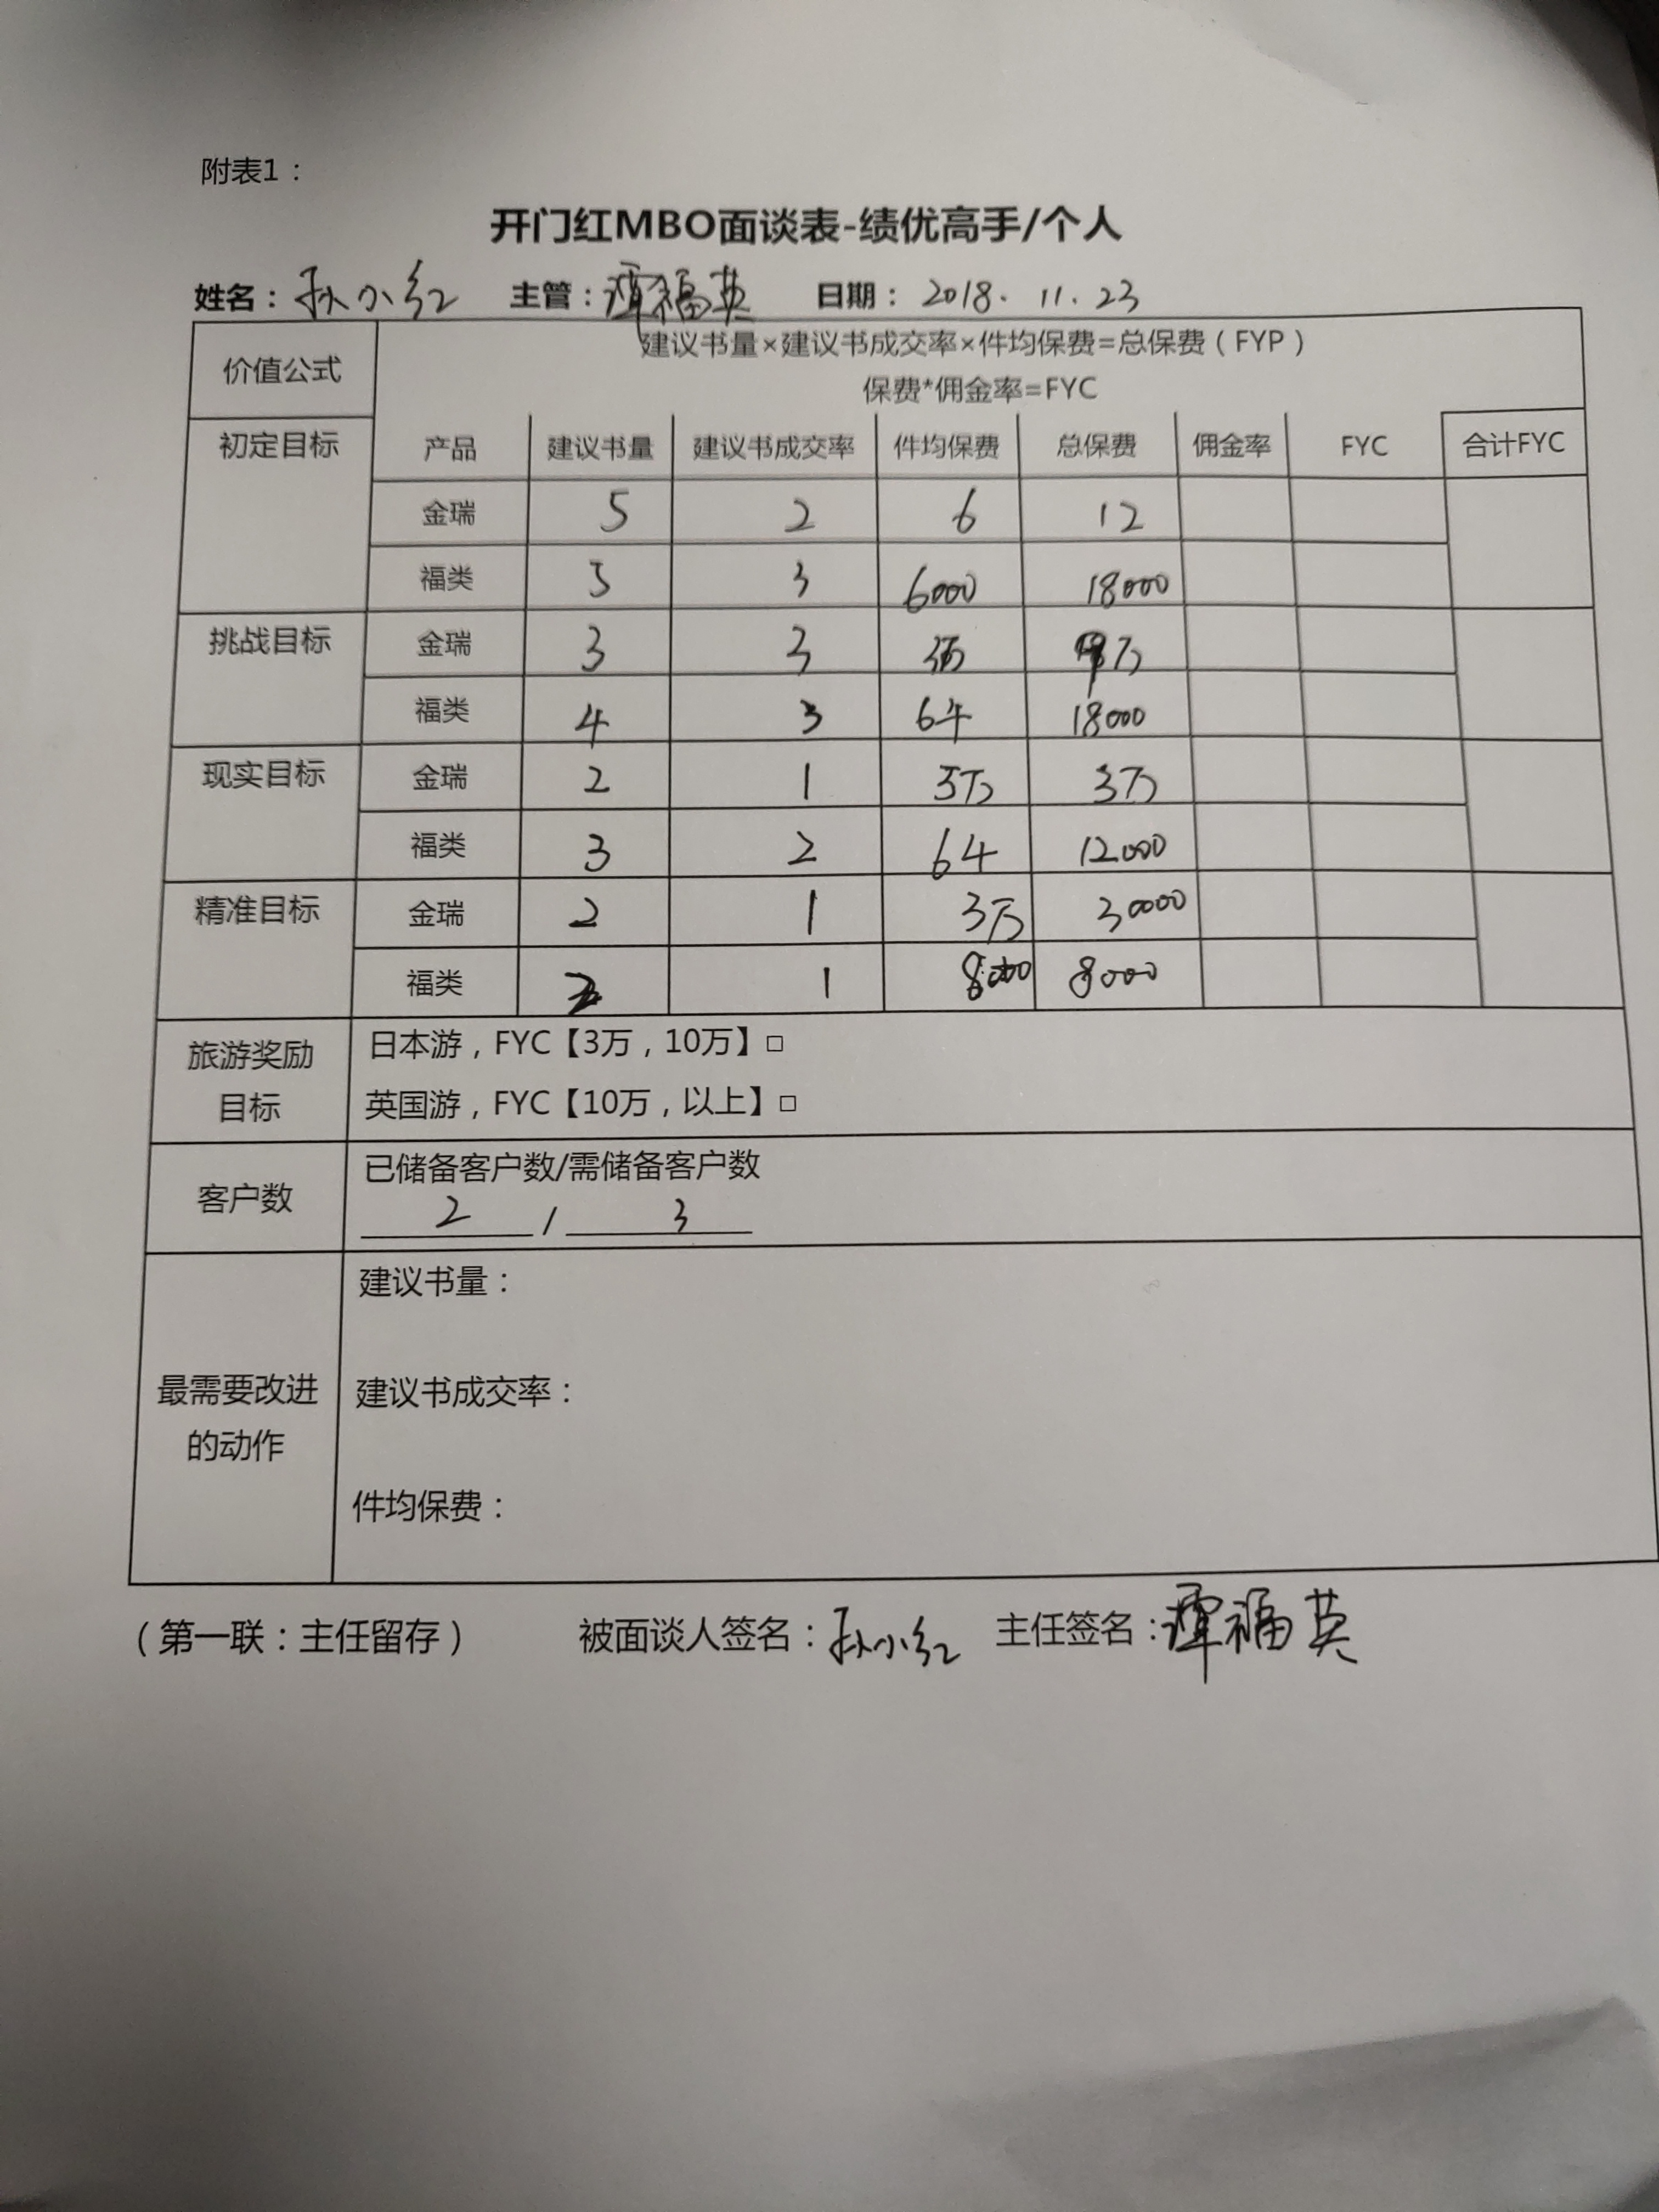 附表1：
开门红MBO面谈表-绩优高手/个人
姓名：孙小红 主管：谭福英 日期：2018.11.23
价值公式 建议书量×建议书成交率×件均保费=总保费（FYP）
保费*佣金率=FYC
初定目标 产品 建议书量 建议书成交率 件均保费 总保费 佣金率 FYC 合计FYC
金瑞 5 2 6 12
福类 5 3 6000 18000
挑战目标 金瑞 3 3 3万 万
福类 4 3 6千 18000
现实目标 金瑞 2 1 3万 3万
福类 3 2 6千 12000
精准目标 金瑞 2 1 3万 30000
福类 2 1 8000 8000
旅游奖励目标 日本游，FYC【3万，10万】□
英国游，FYC【10万，以上】□
客户数 已储备客户数/需储备客户数
2 / 3
最需要改进的动作 建议书量：
建议书成交率：
件均保费：
（第一联：主任留存） 被面谈人签名：孙小红 主任签名：谭福英